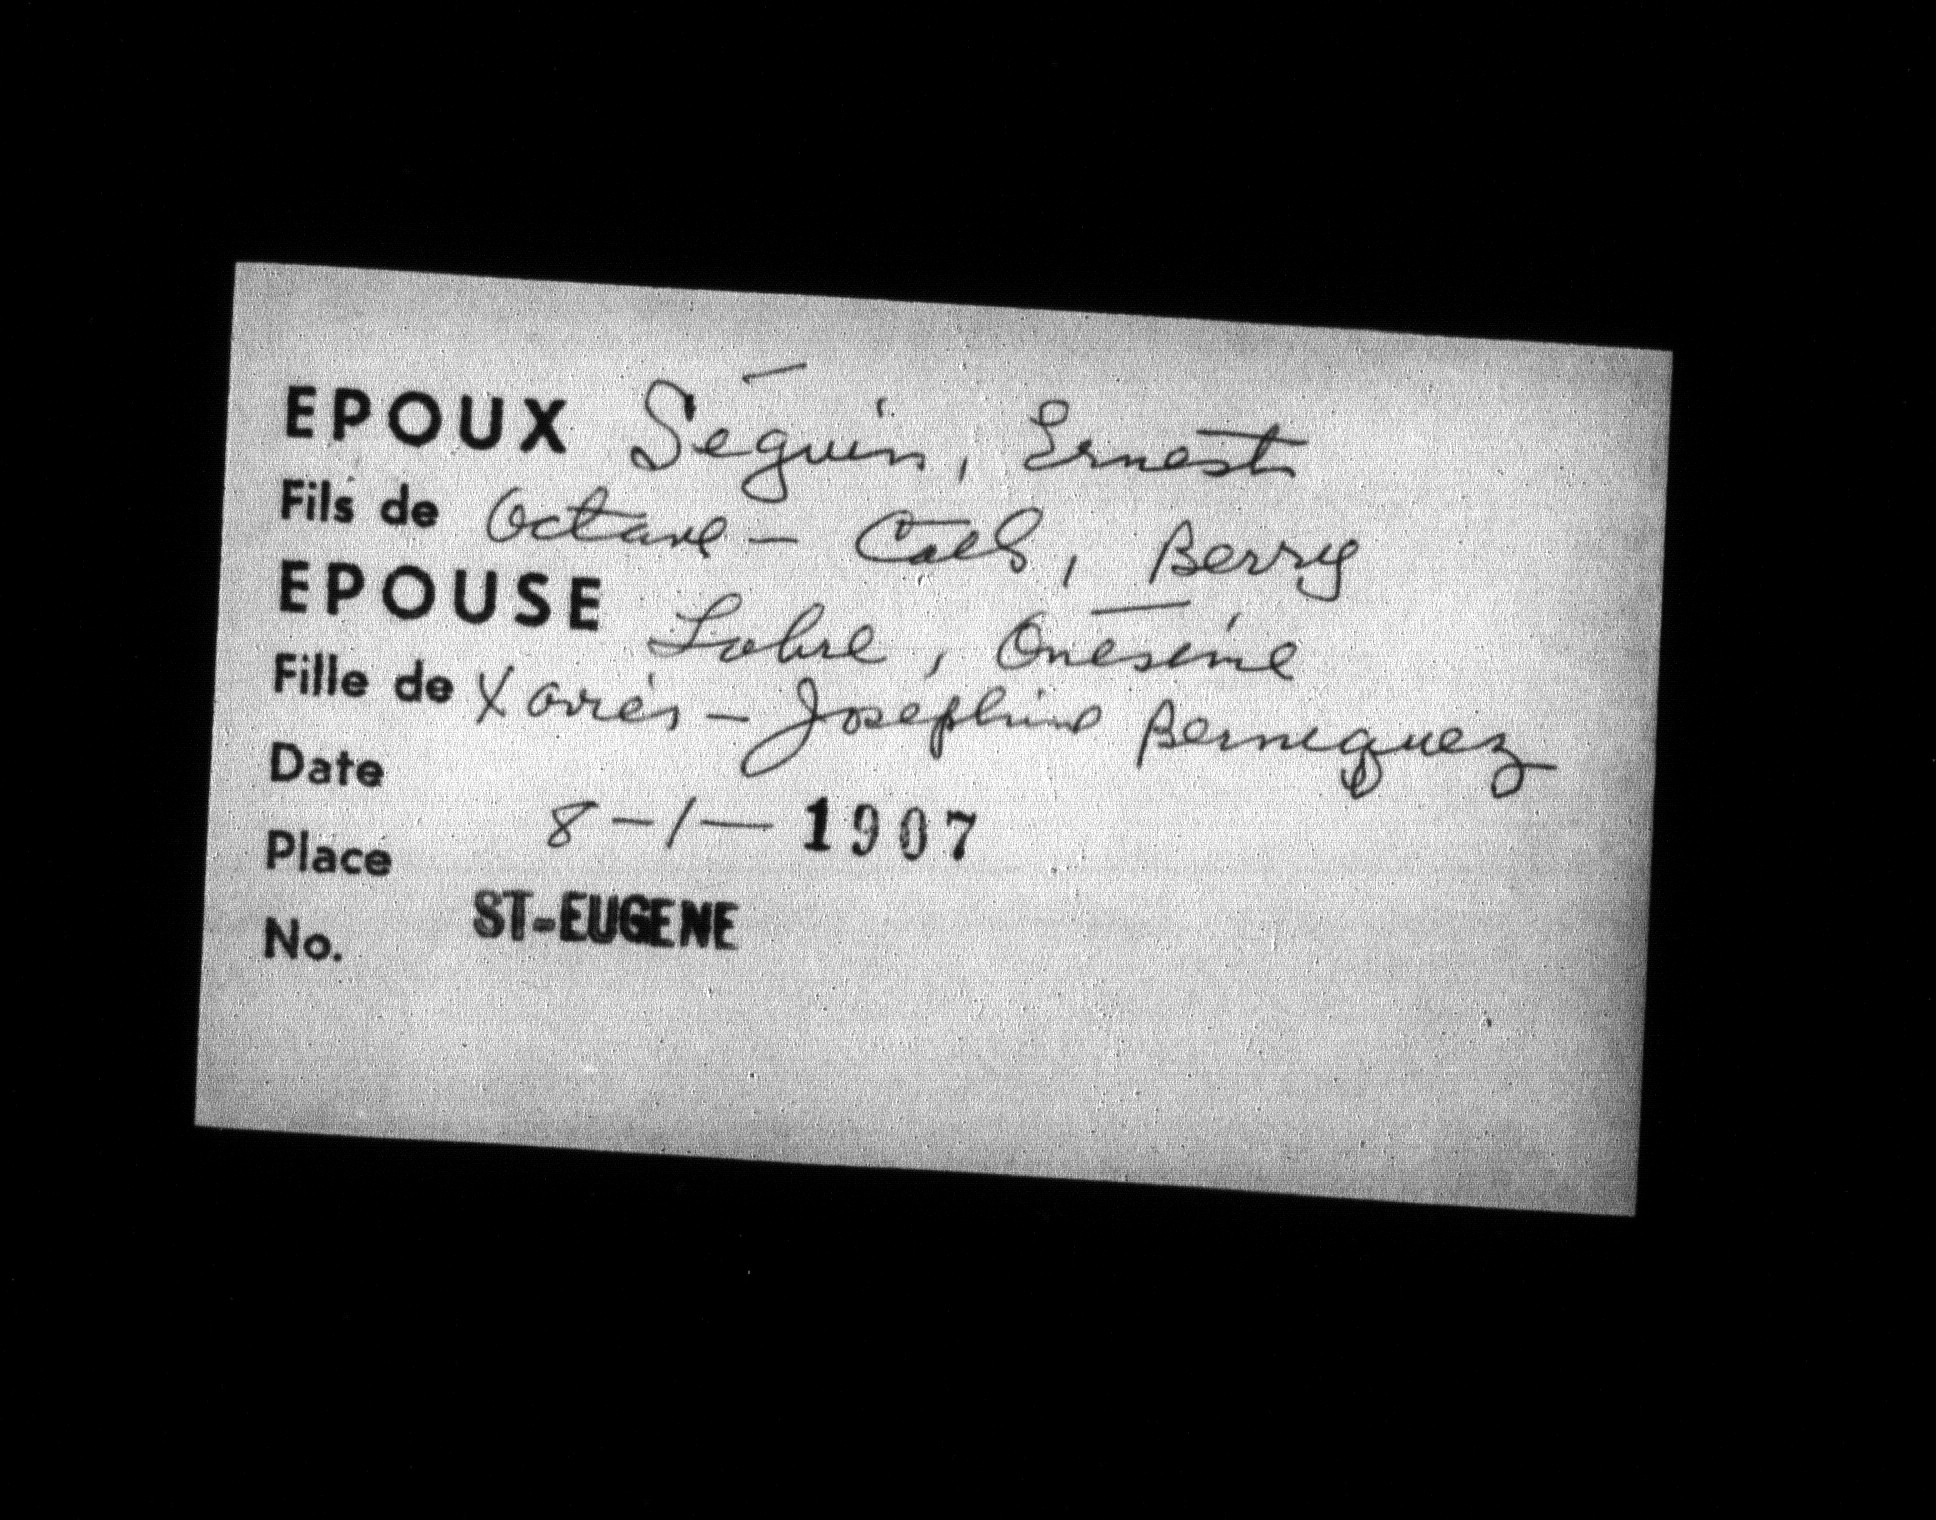 EPOUX Séguin, Ernest
Fils de Octave - Cath, Berry
EPOUSE Labre, Onésime
Fille de Xavier - Josephine Berniquez
Date 8-1-1907
Place ST-EUGENE
No.